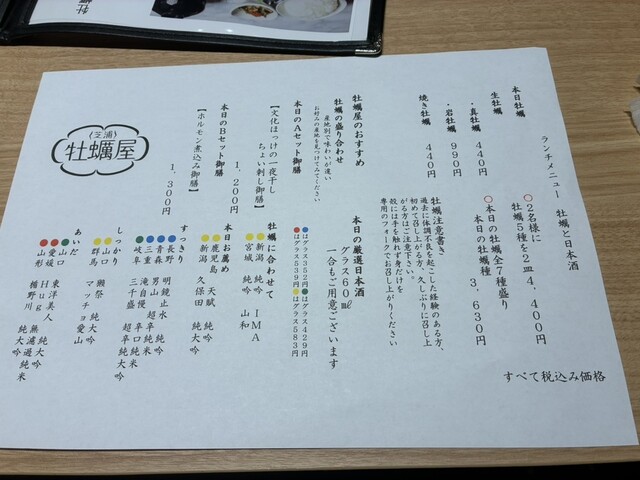 ランチメニュー　牡蠣と日本酒
すべて税込み価格
本日牡蠣
生牡蠣
・真牡蠣　440円
・岩牡蠣　990円
焼き牡蠣　440円
○2名様に
牡蠣5種を2皿4,400円
○本日の牡蠣全7種盛り
3,630円
本日の牡蠣種
牡蠣注意書き
過去に体調不良を起こした経験のある方、
初めて召し上がる方、久しぶりに召し上
がる方はご注意下さい。
殻には手を触れず身だけを
専用のフォークでお召し上がりください
牡蠣屋のおすすめ
牡蠣の盛り合わせ
産地別で味わいが違い
お好みの産地を見つけてみてください
本日のAセット御膳
【文化ほっけの一夜干し
ちょい刺し御膳】
1,200円
本日のBセット御膳
【ホルモン煮込み御膳】
1,300円
本日の厳選日本酒
グラス60㎖
一合もご用意ございます
●はグラス352円●はグラス429円
●はグラス539円●はグラス583円
牡蠣に合わせて
●新潟　純吟　IMA
●宮城　純吟　山和
本日お薦め
●鹿児島　天賦　純吟
●新潟　久保田　純大吟
すっきり
●長野　明鏡止水　純吟
●青森　男山　超辛純米
●三重　滝自慢　辛口純米
●岐阜　三千盛　超辛純大吟
しっかり
●山口　獺祭　純大吟
●群馬　マッチョ愛山
あいだ
●山口　東洋美人　純大吟
●愛媛　Hug　無濾過純米
●山形　楯野川　純大吟
〈芝浦〉
牡蠣屋